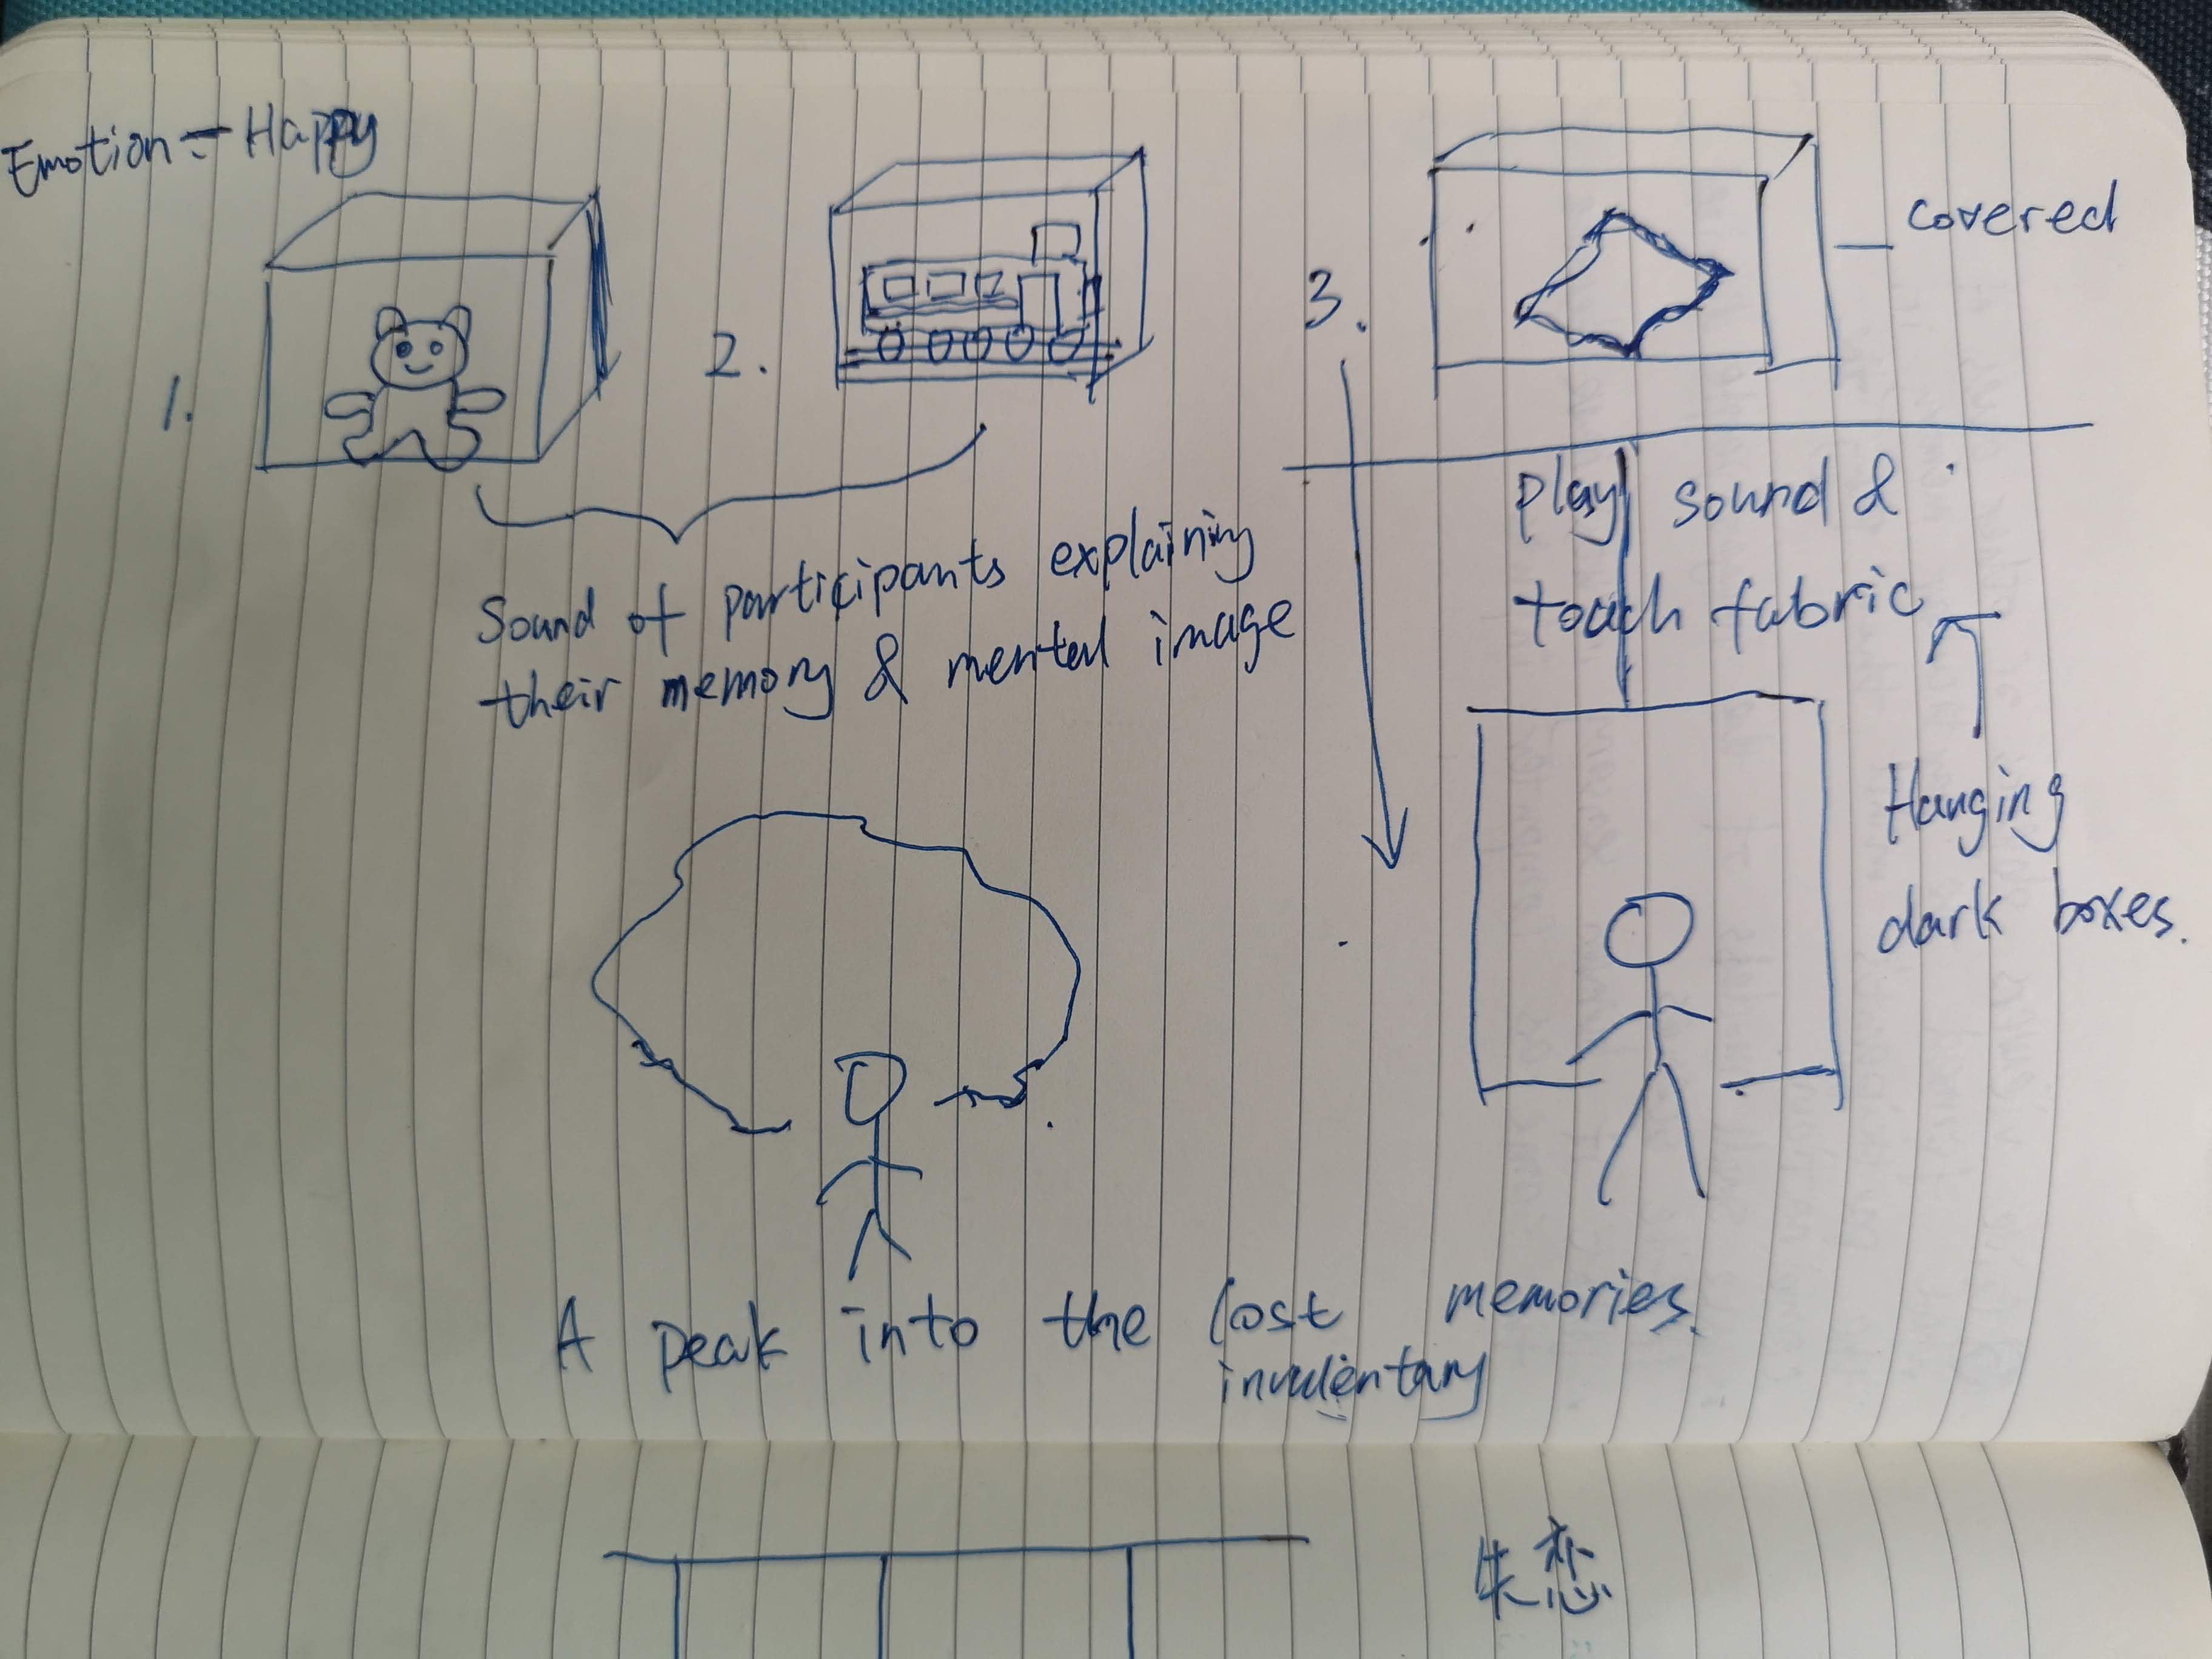 Emotion = Happy
1.
2.
3.
covered
Sound of participants explaining
their memory & mental image
play sound &
touch fabric
Hanging
dark boxes.
A peak into the lost memories.
失恋